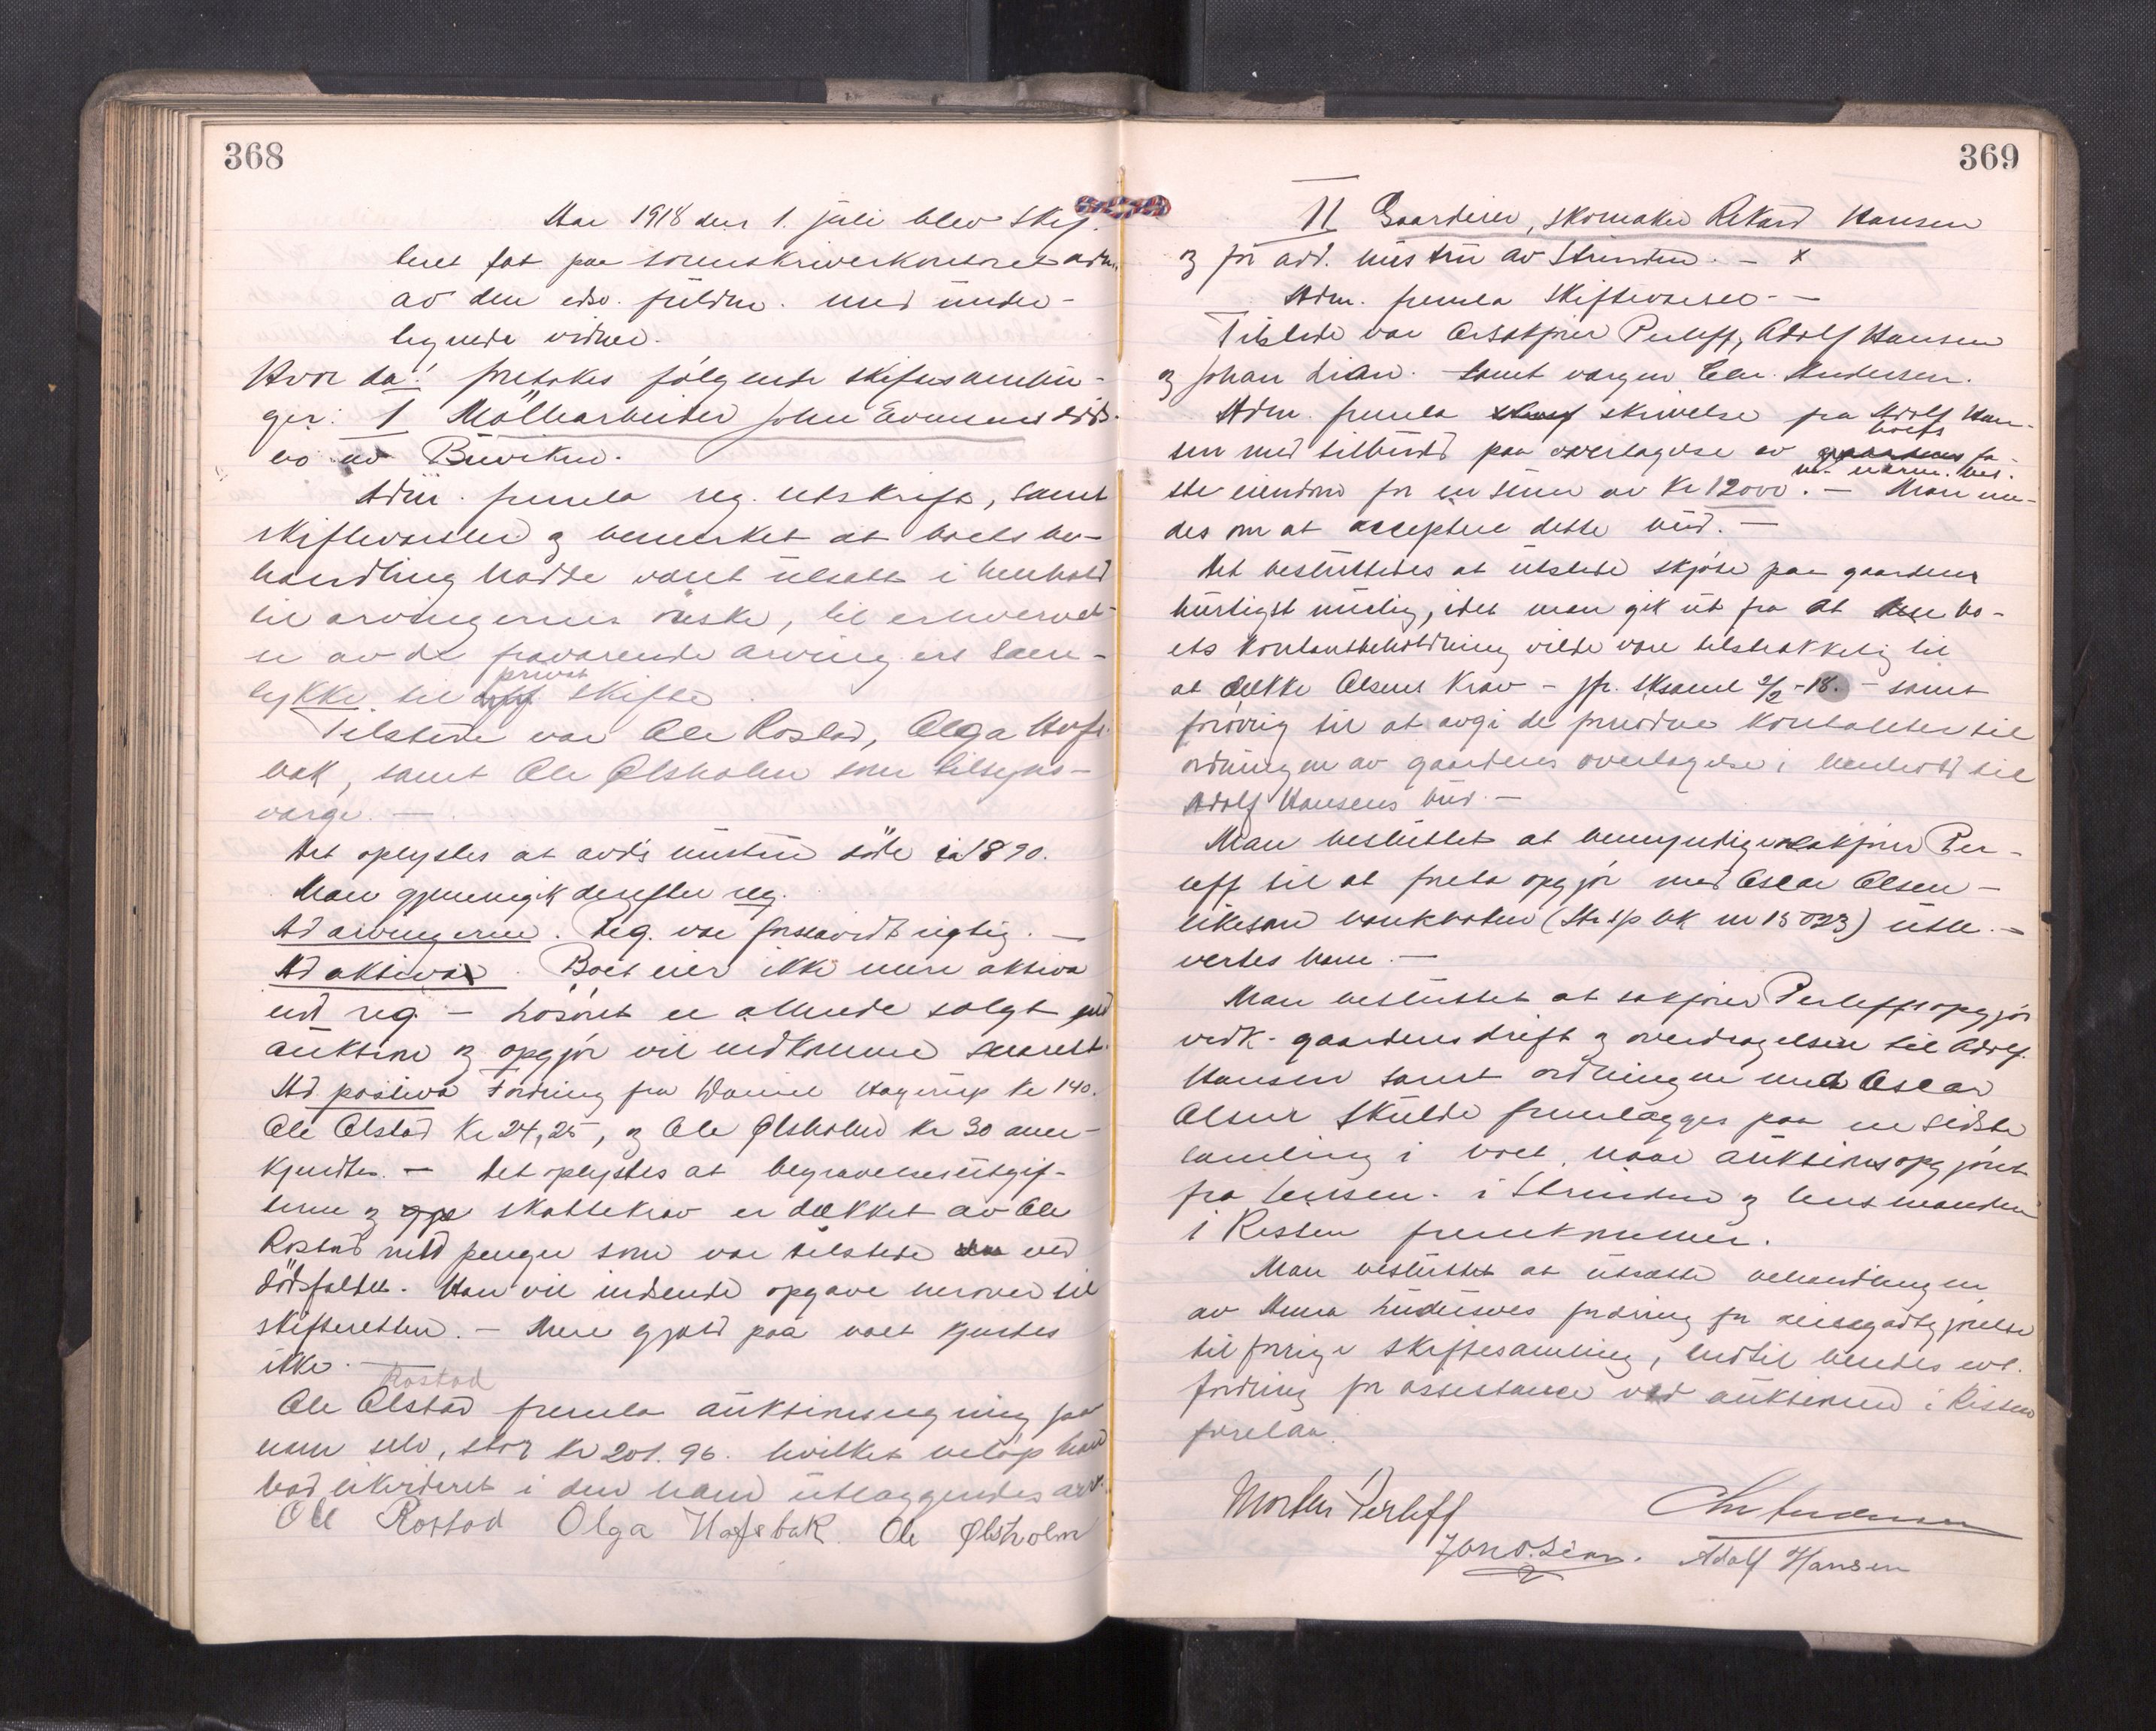 368
Aar 1918 den 1. juli blev skif-
teret sat paa sorenskriverkontoret adm.
av den edsv. fuldm. med under-
tegnede vidner.
Hvor da! foretokes følgende skiftesamlin-
ger: 1 Möllearbeider John Evensens döds-
bo av Buviken.
Adm. fremla reg. utskrift, samt
skiftevarsler og bemerket at boets be-
handling hadde været utsatt i henhold
til arvingernes önske, til erhvervel-
se av de fraværende arvingers sam-
tykke til privat skifte.
Tilstede var Ole Rostad, Olga Hofs-
bak, samt Ole Ølsholm som tilsyns-
verge. —
Det oplystes at avd's hustru döde i 1890.
Man gjennemgik derefter reg.
Ad arvingerne. Reg. var forsaavidt rigtig. —
Ad aktiva. Boet eier ikke mere aktiva
end reg. — Lösöret er allerede solgt ved
auktion og opgjör vil indkomme snarest.
Ad passiva Fordring fra Daniel Hagerup kr 140.
Ole Olstad kr 24,25, og Ole Ølsholm kr 30 aner-
kjendtes. — Det oplystes at begravelsesutgif-
terne og skattekrav er dækket av Ole
Rostad med penger som var tilstede ved
dödsfaldet. Han vil indsende opgave herover til
skifteretten. — Mere gjæld paa boet kjendtes
ikke. —
Rostad
Ole Olstad fremla auktionsregning paa
ham selv, stor kr 201.96. hvilket belöp han
bad likvideret i den ham utlæggendes arv.
Ole Rostad Olga Hofsbak. Ole Ølsholm
369
11 Gaardeier, skomaker Rikard Hansen
og för avd. hustru av Strinden. — x
Adm. fremla skiftevarsel. —
Tilstede var O.r.sakförer Perleff, Adolf Hansen
og Johan Lian. samt vergen Chr. Andersen.
Adm. fremla skrivelse fra Adolf Han-
sen med tilbud paa overtagelse av boets fa-
ste eiendom for en sum av kr 12000. — Man ene-
des om at acceptere dette bud. —
Det besluttedes at utstede skjöte paa gaarden
hurtigst mulig, idet man gik ut fra at bo-
ets kontantbeholdning vilde være tilstrækkelig til
at dække Olsens krav — jfr. sksaml 2/2 - 18. — samt
forövrig til at avgi de fornödne kontanter til
ordningen av gaardens overtagelse i henhold til
Adolf Hansens bud. —
Man besluttet at bemyndige sakförer Per-
leff til at foreta opgjör med Oscar Olsen —
likesom bankboken (Str sp bk nr 15023) utle-
vertes ham. —
Man besluttet at sakförer Perleffs opgjör
vedk. gaardens drift og overdragelsen til Adolf
Hansen samt ordningen med Oscar
Olsen skulde fremlægges paa en sidste
samling i boet, naar auktionsopgjöret
fra lensm. i Strinden og lensmanden
i Rissen fremkommer.
Man besluttet at utsætte behandlingen
av fordring for reisegodtgjörelse
til forrige skiftesamling, indtil hendes evt.
fordring for assistance ved auktionen i Rissen
forelaa.
Morten Perleff Chr Andersen
Joh O. Lian. Adolf Hansen